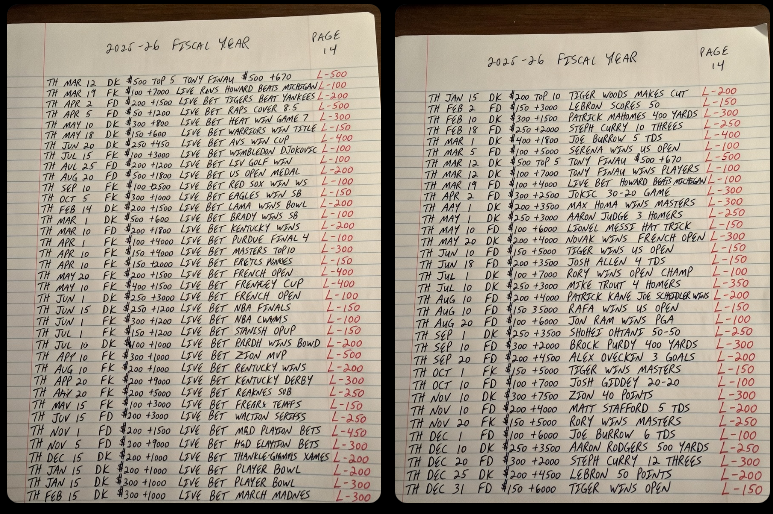 2025-26 FISCAL YEAR
PAGE
14
TH MAR 12 DK $500 TOP 5 TONY FINAU $500 +670 L-500
TH MAR 19 FK $100 +7000 LIVE ROWS HOWARD BEATS MICHIGAN L-100
TH APR 2 FD $200 +1500 LIVE BET TIGERS BEAT YANKEES L-200
TH APR 5 FD $50 +1200 LIVE BET RAPS COVER 8.5 L-500
TH MAY 10 DK $300 +800 LIVE BET HEAT WIN GAME 7 L-300
TH MAY 18 DK $150 +600 LIVE BET WARRIORS WIN TITLE L-150
TH JUN 20 DK $250 +450 LIVE BET AVS WIN CUP L-400
TH JUL 15 FK $100 +3000 LIVE BET WIMBLEDON DJOKOVIC L-100
TH AUL 25 FD $200 +1200 LIVE BET LIV GOLF WIN L-100
TH AUG 20 FD $500 +1800 LIVE BET US OPEN MEDAL L-200
TH SEP 10 FK $100 +2500 LIVE BET RED SOX WIN WS L-100
TH OCT 5 FK $300 +1000 LIVE BET EAGLES WIN SB L-150
TH FEB 14 DK $200 +1500 LIVE BET LAMA WINS BOWL L-200
TH MAR 1 DK $500 +600 LIVE BET BRADY WINS SB L-100
TH MAR 10 FD $200 +1800 LIVE BET KENTUCKY WINS L-200
TH APR 1 FK $100 +4000 LIVE BET PURDUE FINAL 4 L-100
TH APR 10 FK $150 +4000 LIVE BET MASTERS TOP10 L-300
TH APR 10 FK $150 +2000 LIVE BET L-150
TH MAY 20 FK $200 +1500 LIVE BET FRENCH OPEN L-400
TH MAY 10 FK $400 +1500 LIVE BET CUP L-400
TH JUN 1 DK $250 +3000 LIVE BET FRENCH OPEN L-100
TH JUN 15 DK $250 +1200 LIVE BET NBA FINALS L-150
TH JUN 1 FK $300 +1200 LIVE BET NBA L-100
TH JUL 1 FK $150 +1200 LIVE BET L-150
TH JUL 10 DK $100 +1000 LIVE BET PARDH WINS BOWD L-200
TH APY 10 FK $300 +1000 LIVE BET ZION MVP L-500
TH AUG 10 FK $200 +1000 LIVE BET RENTUCKY WINS L-200
TH APP 20 FK $200 +9000 LIVE BET KENTUCKY DERBY L-300
TH AAY 20 FK $200 +7500 LIVE BET REAKNES SOB L-250
TH MAY 15 FK $100 +3000 LIVE BET FREARS TEMPS L-150
TH JUV 15 FD $200 +3000 LIVE BET WALTION SERIESS L-250
TH NOV 1 FD $200 +1500 LIVE BET MBD PLAYION BETS L-450
TH NOV 5 FD $300 +9000 LIVE BET HGD ELAYTION BETS L-300
TH DEC 15 DK $200 +1000 LIVE BET XAMES L-200
TH JAN 15 DK $200 +1000 LIVE BET PLAYER BOWL L-200
TH JAN 15 DK $300 +1000 LIVE BET PLAYER BOWL L-300
TH FEB 15 DK $300 +1000 LIVE BET MARCH MADNES L-300
2025-26 FISCAL YEAR
PAGE
14
TH JAN 15 DK $200 TOP 10 TIGER WOODS MAKES CUT L-200
TH FEB 2 FD $150 +3000 LEBRON SCORES 50 L-150
TH FEB 10 DK $300 +1500 PATRICK MAHOMES 400 YARDS L-300
TH FEB 18 FD $250 +2000 STEPH CURRY 10 THREES L-250
TH MAR 1 DK $400 +1800 JOE BURROW 5 TDS L-400
TH MAR 5 FD $100 +5000 SERENA WINS US OPEN L-100
TH MAR 12 DK $500 TOP 5 TONY FINAU $500 +670 L-500
TH MAR 12 DK $100 +7000 TONY FINAU WINS PLAYERS L-100
TH MAR 19 FD $100 +4000 LIVE BET HOWARD BEATS MICHIGAN L-100
TH APR 2 FD $300 +2500 JOKIC 30-20 GAME L-300
TH AAY 1 DK $200 +3500 MAX HOMA WINS MASTERS L-200
TH MAY 1 DK $250 +3000 AARON JUDGE 3 HOMERS L-250
TH MAY 10 FD $100 +6000 LIONEL MESSI HAT TRICK L-150
TH MAY 20 DK $200 +4000 NOVAK WINS FRENCH OPEN L-300
TH JUN 10 FD $150 +5000 TIGER WINS US OPEN L-150
TH JUN 18 FD $200 +3500 JOSH ALLEN 4 TDS L-150
TH JUL 1 DK $100 +7000 RORY WINS OPEN CHAMP L-100
TH JUL 10 DK $250 +3000 MIKE TROUT 4 HOMERS L-350
TH AUG 10 FD $200 +4000 PATRICK KANE JOE WINS L-200
TH AUG 10 FD $150 3500 RAFA WINS US OPEN L-150
TH AUG 20 FD $100 +6000 JON RAM WINS PGA L-100
TH SEP 1 DK $250 +3500 SHOHEI OHTANI 50-50 L-250
TH SEP 10 FD $300 +2000 BROCK PURDY 400 YARDS L-300
TH SEP 20 FD $200 +4500 ALEX OVECKIN 3 GOALS L-200
TH OCT 1 FK $150 +5000 TIGER WINS MASTERS L-150
TH OCT 10 FD $100 +7000 JOSH GIDDEY 20-20 L-100
TH NOV 10 DK $300 +7500 ZION 40 POINTS L-300
TH NOV 10 FD $200 +4000 MATT STAFFORD 5 TDS L-200
TH NOV 20 FK $150 +5000 RORY WINS MASTERS L-250
TH DEC 1 FD $100 +6000 JOE BURROW 6 TDS L-100
TH DEC 10 DK $250 +3500 AARON RODGERS 500 YARDS L-250
TH DEC 20 FD $300 +2000 STEPH CURRY 12 THREES L-300
TH DEC 25 DK $200 +4500 LEBRON 50 POINTS L-200
TH DEC 31 FD $150 +6000 TIGER WINS OPEN L-150